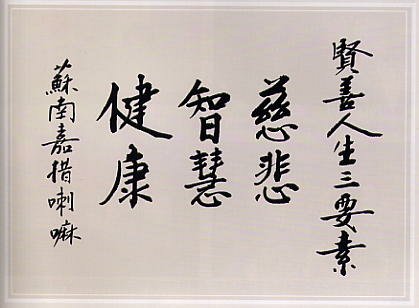 賢善人生三要素
慈悲
智慧
健康
蘇南嘉措喇嘛